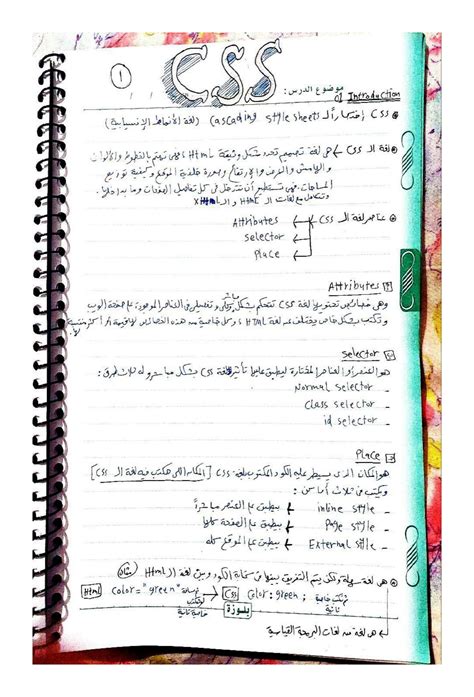 CSS
1
موضوع الدرس :
01 Introduction
CSS إختصار لـ Cascading style sheets (لغة الأنماط الإنسيابية)
لغة الـ CSS ← هي لغة تصميم تحدد شكل وثيقة Html بالخطوط والألوان
والهوامش والعرض والإرتفاع وصورة خلفية الموقع وكيفية توزيع
المساحات في كل تفاصيل الصفحات وما بداخلها
وتتكامل مع لغات الـ Html و الـ XHtml
عناصر لغة الـ CSS
Attributes
selector
Place
Attributes
وهي خصائص تحتويها لغة CSS تتحكم بشكل مباشر وتفصيلي في العناصر الموجودة على صفحة الويب
وتكتب بشكل خاص يختلف عن لغة HTML وكل خاصية من هذه الخصائص لها قيمة أو أكثر
selector
هو العنصر أو العناصر المختارة ليطبق عليها تأثير لغة CSS بشكل مباشر وله ثلاث طرق :
Normal selector -
Class selector -
id selector -
Place
هو المكان الذي يسيطر عليه الكود المكتوب بلغة CSS [المكان اللي هكتب فيه لغة الـ CSS]
ويكتب في ثلاث أماكن :
inline style ← بيطبق على العنصر مباشرة
Page style ← بيطبق على الصفحة كلها
External stile ← بيطبق على الموقع كله
هي لغة سهلة ولكن يتم التفريق بينها في كتابة الكود وبين لغة الـ Html مثال
Html color="green" CSS Color: green;
هي لغة من لغات البرمجة القياسية